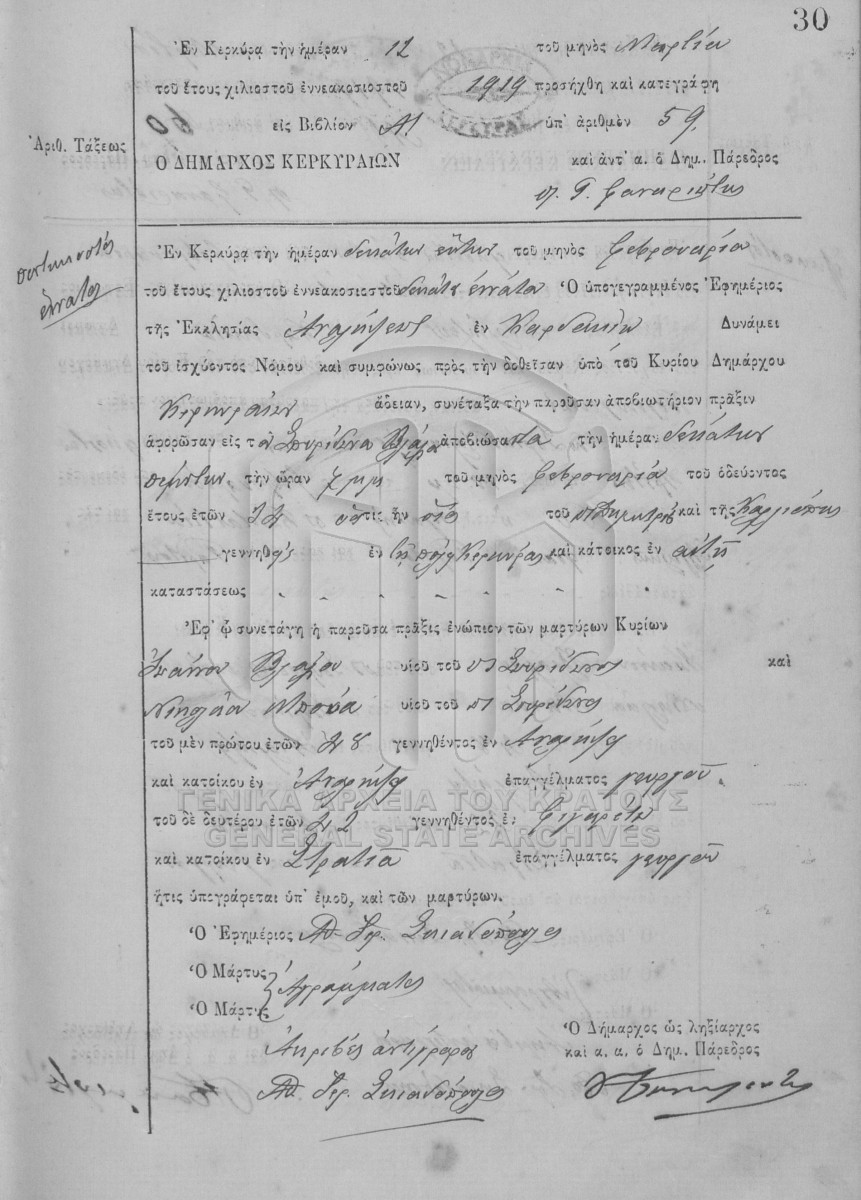 30
Ἐν Κερκύρᾳ τὴν ἡμέραν 12 τοῦ μηνὸς Μαρτίου
τοῦ ἔτους χιλιοστοῦ ἐννεακοσιοστοῦ 1919 προσήχθη καὶ κατεγράφη
εἰς Βιβλίον Α! ὑπ' ἀριθμὸν 59
60
Ἀριθ. Τάξεως
Ο ΔΗΜΑΡΧΟΣ ΚΕΡΚΥΡΑΙΩΝ καὶ ἀντ' α. ὁ Δημ. Πάρεδρος
Ἐν Κερκύρᾳ τὴν ἡμέραν δεκάτην ἕκτην τοῦ μηνὸς Φεβρουαρίου
πεντηκοστός
ἔννατος
τοῦ ἔτους χιλιοστοῦ ἐννεακοσιοστοῦ δεκάτου ἐννάτου Ὁ ὑπογεγραμμένος Ἐφημέριος
τῆς Ἐκκλησίας Ἀναλήψεως ἐν Καρδακίῳ Δυνάμει
τοῦ ἰσχύοντος Νόμου καὶ συμφώνως πρὸς τὴν δοθεῖσαν ὑπὸ τοῦ Κυρίου Δημάρχου
Κερκυραίων ἄδειαν, συνέταξα τὴν παροῦσαν ἀποβιωτήριον πρᾶξιν
ἀφορῶσαν εἰς τὸν Σπυρίδωνα Βλάχον ἀποβιώσαντα τὴν ἡμέραν δεκάτην
πέμπτην τὴν ὥραν 7 μμ τοῦ μηνὸς Φεβρουαρίου τοῦ ὁδεύοντος
ἔτους ἐτῶν ὅστις ἦν υἱὸς τοῦ Δημητρίου καὶ τῆς Καλλιόπης
γεννηθεὶς ἐν τῇ πόλει Κερκύρας καὶ κάτοικος ἐν αὐτῇ
καταστάσεως
Ἐφ' ᾧ συνετάγη ἡ παροῦσα πρᾶξις ἐνώπιον τῶν μαρτύρων Κυρίων
Ἰωάννου Βλάχου υἱοῦ τοῦ Σπυρίδωνος καὶ
Νικολάου Μπούα υἱοῦ τοῦ Σπυρίδωνος
τοῦ μὲν πρώτου ἐτῶν 28 γεννηθέντος ἐν Ἀναλήψει
καὶ κατοίκου ἐν Ἀναλήψει ἐπαγγέλματος γεωργοῦ
τοῦ δὲ δευτέρου ἐτῶν 42 γεννηθέντος ἐν Φιγαρέτῳ
καὶ κατοίκου ἐν Στρατιᾷ ἐπαγγέλματος γεωργοῦ
ἥτις ὑπογράφεται ὑπ' ἐμοῦ, καὶ τῶν μαρτύρων.
Ὁ Ἐφημέριος Ἀθ. Ἱερ. Σκιαδόπουλος
Ὁ Μάρτυς
Ἀγράμματοι
Ὁ Μάρτυς
Ἀκριβὲς ἀντίγραφον
Ἀθ. Ἱερ. Σκιαδόπουλος
Ὁ Δήμαρχος ὡς ληξίαρχος
καὶ α. α. ὁ Δημ. Πάρεδρος
ΓΕΝΙΚΑ ΑΡΧΕΙΑ ΤΟΥ ΚΡΑΤΟΥΣ
GENERAL STATE ARCHIVES